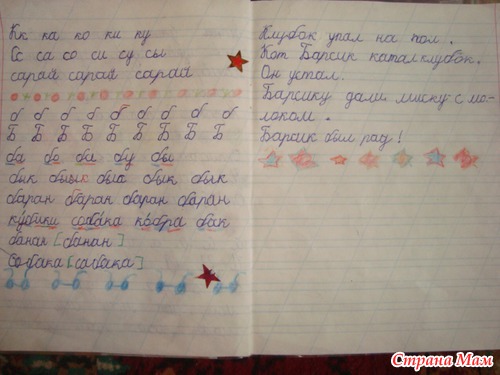 Кк ка ко ки ку
Сс са со си су сы
сарай сарай сарай
б б б б б б б б б
Б Б Б Б Б Б Б Б Б
ба бо би бу бы
бык бык бык бык
баран баран баран баран
кубики соба́ка ко́бра бак
банан [банан]
Собака [сабака]
Клубок упал на пол.
Кот Барсик катал клубок.
Он устал.
Барсику дали миску с мо-
локом.
Барсик был рад!
Страна Мам